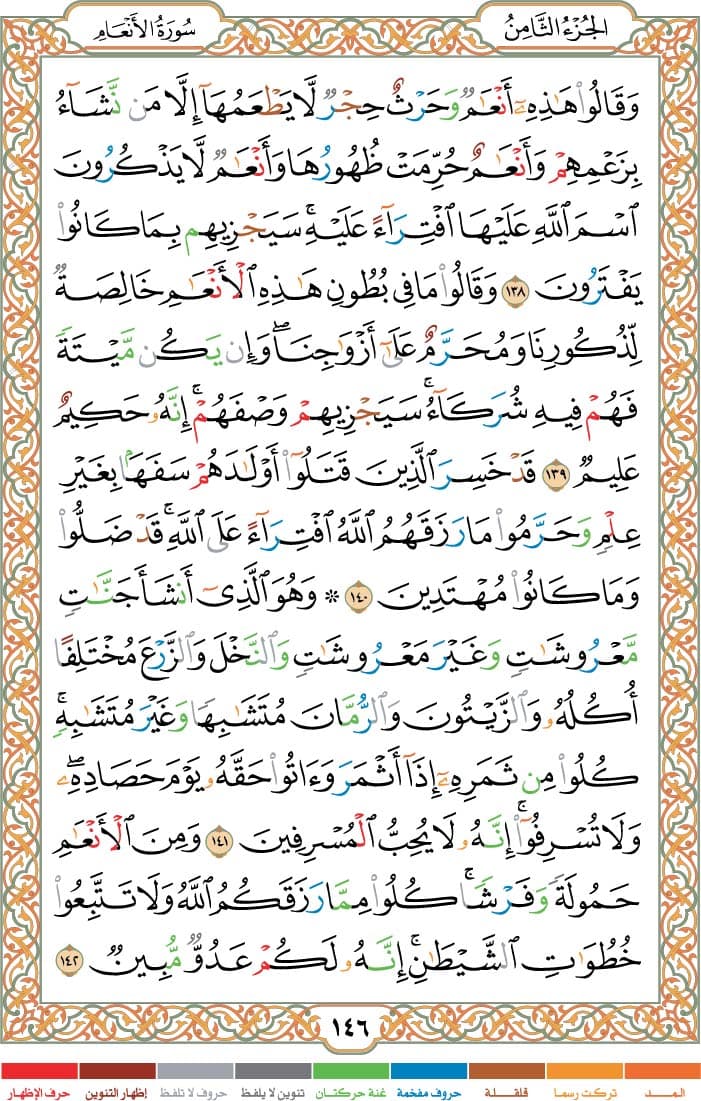 الجزء الثامن
سورة الأنعام
وَقَالُوا۟ هَـٰذِهِۦٓ أَنْعَـٰمٌ وَحَرْثٌ حِجْرٌ لَّا يَطْعَمُهَآ إِلَّا مَن نَّشَآءُ
بِزَعْمِهِمْ وَأَنْعَـٰمٌ حُرِّمَتْ ظُهُورُهَا وَأَنْعَـٰمٌ لَّا يَذْكُرُونَ
ٱسْمَ ٱللَّهِ عَلَيْهَا ٱفْتِرَآءً عَلَيْهِ ۚ سَيَجْزِيهِم بِمَا كَانُوا۟
يَفْتَرُونَ ١٣٨ وَقَالُوا۟ مَا فِى بُطُونِ هَـٰذِهِ ٱلْأَنْعَـٰمِ خَالِصَةٌ
لِّذُكُورِنَا وَمُحَرَّمٌ عَلَىٰٓ أَزْوَٰجِنَا ۖ وَإِن يَكُن مَّيْتَةً
فَهُمْ فِيهِ شُرَكَآءُ ۚ سَيَجْزِيهِمْ وَصْفَهُمْ ۚ إِنَّهُۥ حَكِيمٌ
عَلِيمٌ ١٣٩ قَدْ خَسِرَ ٱلَّذِينَ قَتَلُوٓا۟ أَوْلَـٰدَهُمْ سَفَهًۢا بِغَيْرِ
عِلْمٍ وَحَرَّمُوا۟ مَا رَزَقَهُمُ ٱللَّهُ ٱفْتِرَآءً عَلَى ٱللَّهِ ۚ قَدْ ضَلُّوا۟
وَمَا كَانُوا۟ مُهْتَدِينَ ١٤٠ ۞ وَهُوَ ٱلَّذِىٓ أَنشَأَ جَنَّـٰتٍ
مَّعْرُوشَـٰتٍ وَغَيْرَ مَعْرُوشَـٰتٍ وَٱلنَّخْلَ وَٱلزَّرْعَ مُخْتَلِفًا
أُكُلُهُۥ وَٱلزَّيْتُونَ وَٱلرُّمَّانَ مُتَشَـٰبِهًا وَغَيْرَ مُتَشَـٰبِهٍ ۚ
كُلُوا۟ مِن ثَمَرِهِۦٓ إِذَآ أَثْمَرَ وَءَاتُوا۟ حَقَّهُۥ يَوْمَ حَصَادِهِۦ ۖ
وَلَا تُسْرِفُوٓا۟ ۚ إِنَّهُۥ لَا يُحِبُّ ٱلْمُسْرِفِينَ ١٤١ وَمِنَ ٱلْأَنْعَـٰمِ
حَمُولَةً وَفَرْشًا ۚ كُلُوا۟ مِمَّا رَزَقَكُمُ ٱللَّهُ وَلَا تَتَّبِعُوا۟
خُطُوَٰتِ ٱلشَّيْطَـٰنِ ۚ إِنَّهُۥ لَكُمْ عَدُوٌّ مُّبِينٌ ١٤٢
١٤٦
المـــد تركت رسما قلقـــلة حروف مفخمة غنة حركتـــان تنوين لا يلفظ حروف لا تلفظ إظهار التنوين حرف الإظهار